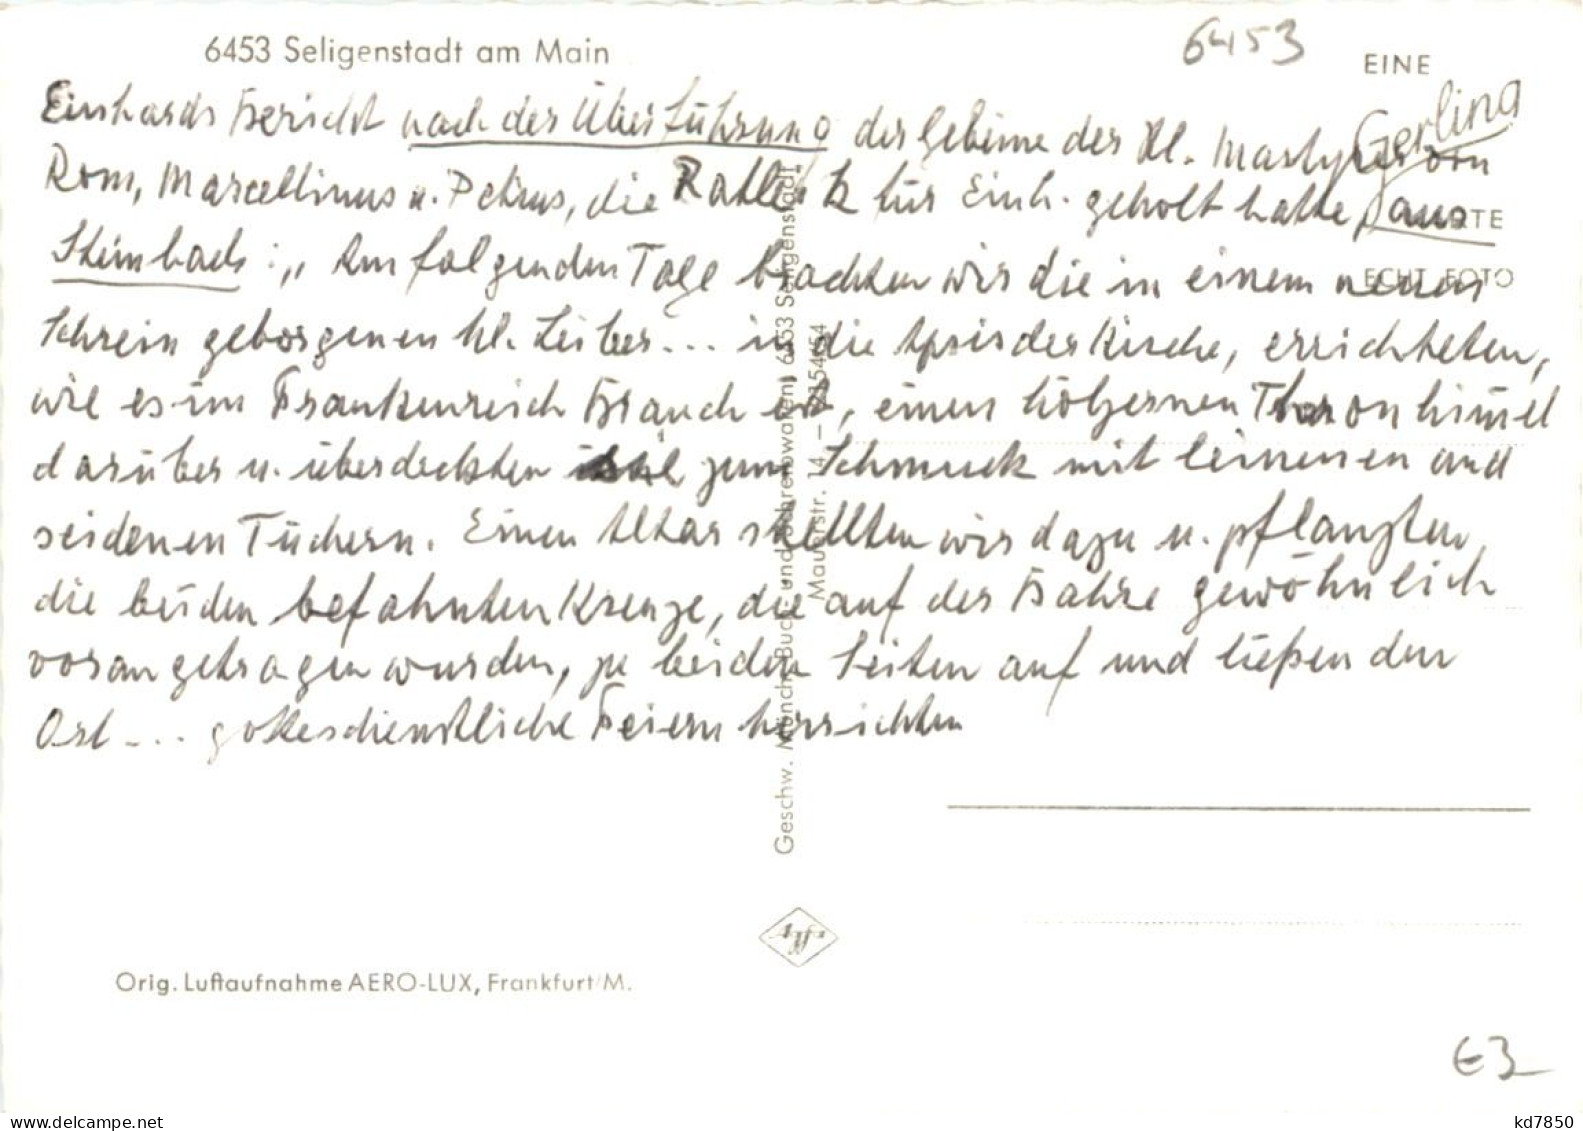 6453 Seligenstadt am Main
6453
EINE
Gerling
KARTE
ECHT FOTO
Einhards Bericht nach der Überführung der Gebeine der hl. Martyrer von
Rom, Marcellinus u. Petrus, die Ratleik für Einh. geholt hatte, aus
Steinbach: „Am folgenden Tage brachten wir die in einem neuen
Schrein geborgenen hl. Leiber... in die Apsis der Kirche, errichteten,
wie es im Frankenreich Brauch ist, einen hölzernen Thronhimmel
darüber u. überdeckten zum Schmuck mit leinenen und
seidenen Tüchern. Einen Altar stellten wir dazu u. pflanzten
die beiden befahnten Kreuze, die auf der Bahre gewöhnlich
vorangetragen wurden, zu beiden Seiten auf und ließen den
Ort ... gottesdienstliche Feiern herrichten
Geschw. Münch, Buch- und Schreibwaren, 6453 Seligenstadt
Mauerstr. 14 –
Agfa
Orig. Luftaufnahme AERO-LUX, Frankfurt/M.
€3
kd7850